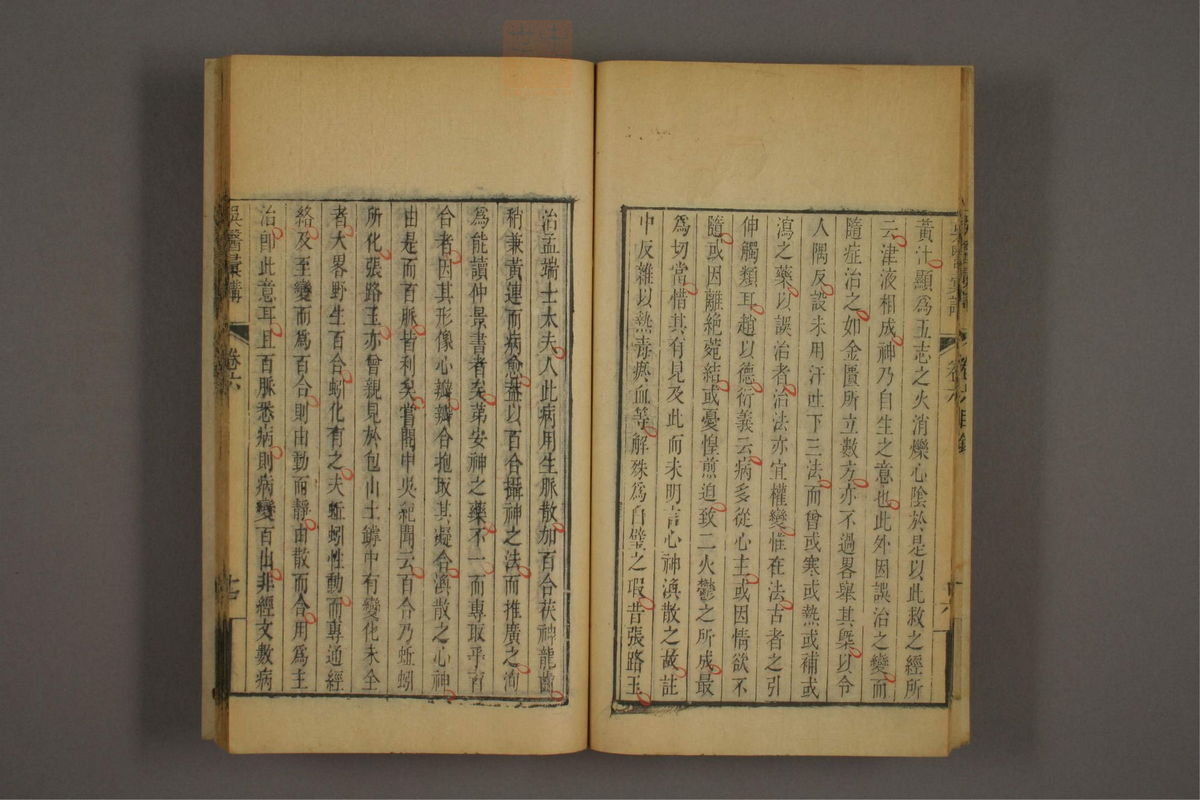 黃汁顯為五志之火消爍心陰於是以此救之經所
云津液相成神乃自生之意也此外因誤治之變而
隨症治之如金匱所立數方亦不過畧舉其槩以令
人隅反設未用汗吐下三法而曾或寒或熱或補或
瀉之藥以誤治者治法亦宜權變惟在法古者之引
伸觸類耳趙以德衍義云病多從心主或因情欲不
隨或因離絶菀結或憂惶煎迫致二火鬱之所成最
為切當惜其有見及此而未明言心神渙散之故註
中反雜以熱毒瘀血等解殊為白璧之瑕昔張路玉
治孟端士太夫人此病用生脉散加百合茯神龍齒
稍兼黃連而病愈益以百合攝神之法而推廣之洵
為能讀仲景書者矣苐安神之藥不一而專取乎百
合者因其形像心瓣瓣合抱取其凝合渙散之心神
由是而百脉皆利矣嘗閱申災祀聞云百合乃蚯蚓
所化張路玉亦曾親見於包山土罅中有變化未全
者大畧野生百合蚓化有之夫蚯蚓性動而專通經
絡及至變而為百合則由動而靜由散而合用為主
治卽此意耳且百脉悉病則病變百出非經文數病
吳醫彙講
卷六